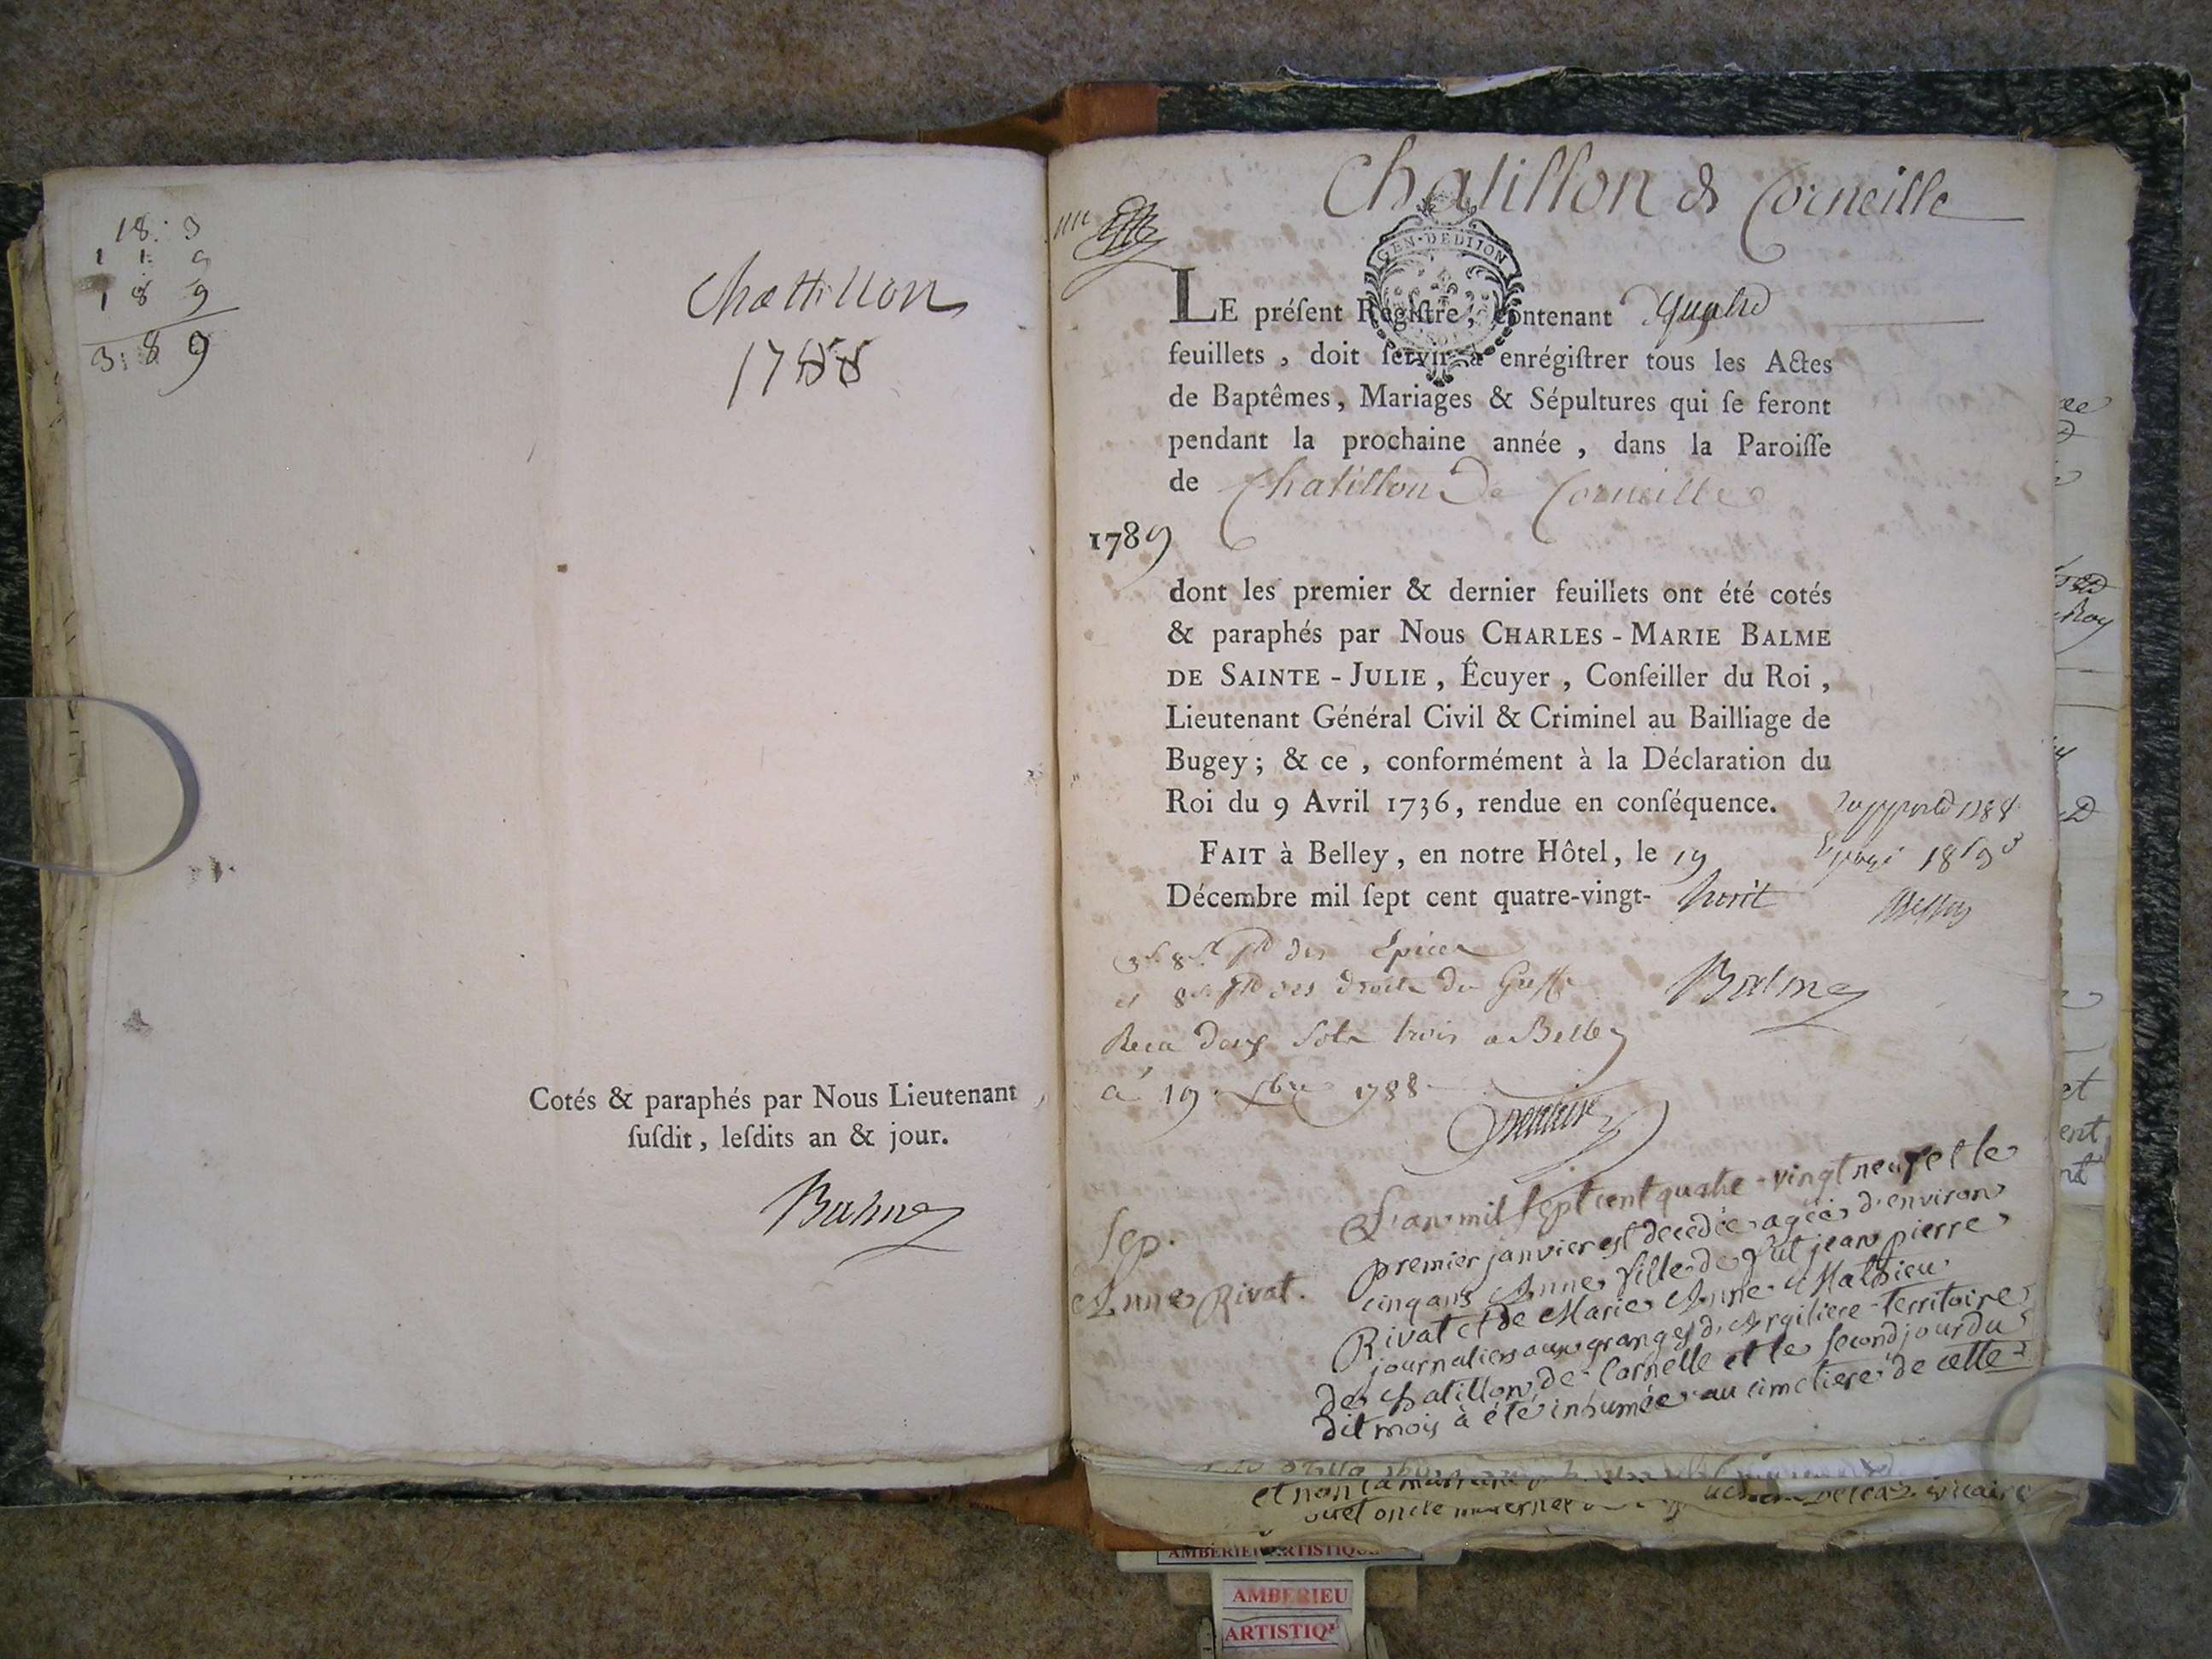 18 : 3
1 1 9
1 8 9
3 : 8 9
Chattillon
1788
Cotés & paraphés par Nous Lieutenant
ſuſdit, leſdits an & jour.
Balme
Chatillon de Corneille
GEN·DE DIJON
LE préſent Regiſtre, contenant quatre
feuillets, doit ſervir à enrégiſtrer tous les Actes
de Baptêmes, Mariages & Sépultures qui ſe feront
pendant la prochaine année, dans la Paroiſſe
de Chatillon De Corneille
1789
dont les premier & dernier feuillets ont été cotés
& paraphés par Nous CHARLES-MARIE BALME
DE SAINTE-JULIE, Écuyer, Conſeiller du Roi,
Lieutenant Général Civil & Criminel au Bailliage de
Bugey; & ce, conformément à la Déclaration du
Roi du 9 Avril 1736, rendue en conſéquence.
FAIT à Belley, en notre Hôtel, le 19
Décembre mil ſept cent quatre-vingt- huit
des Epices
et 8 des droits du Greffe
Balme
Reca deux sols trois a Belley
a 19 xbre 1788
Sep.
Anne Rivat.
L'an mil sept cent quatre-vingt neuf et le
premier janvier est decedée agée d'environ
cinq ans Anne fille de fut jean pierre
Rivat et de Marie Anne Mathieu
journaliers aux granges d'Argiliere territoire
de chatillon de Cornelle et le second jour du
dit mois à été inhumée au cimetiere de cette
et non la
oncle maternel
vicaire
AMBERIEU ARTISTIQUE
AMBERIEU
ARTISTIQ